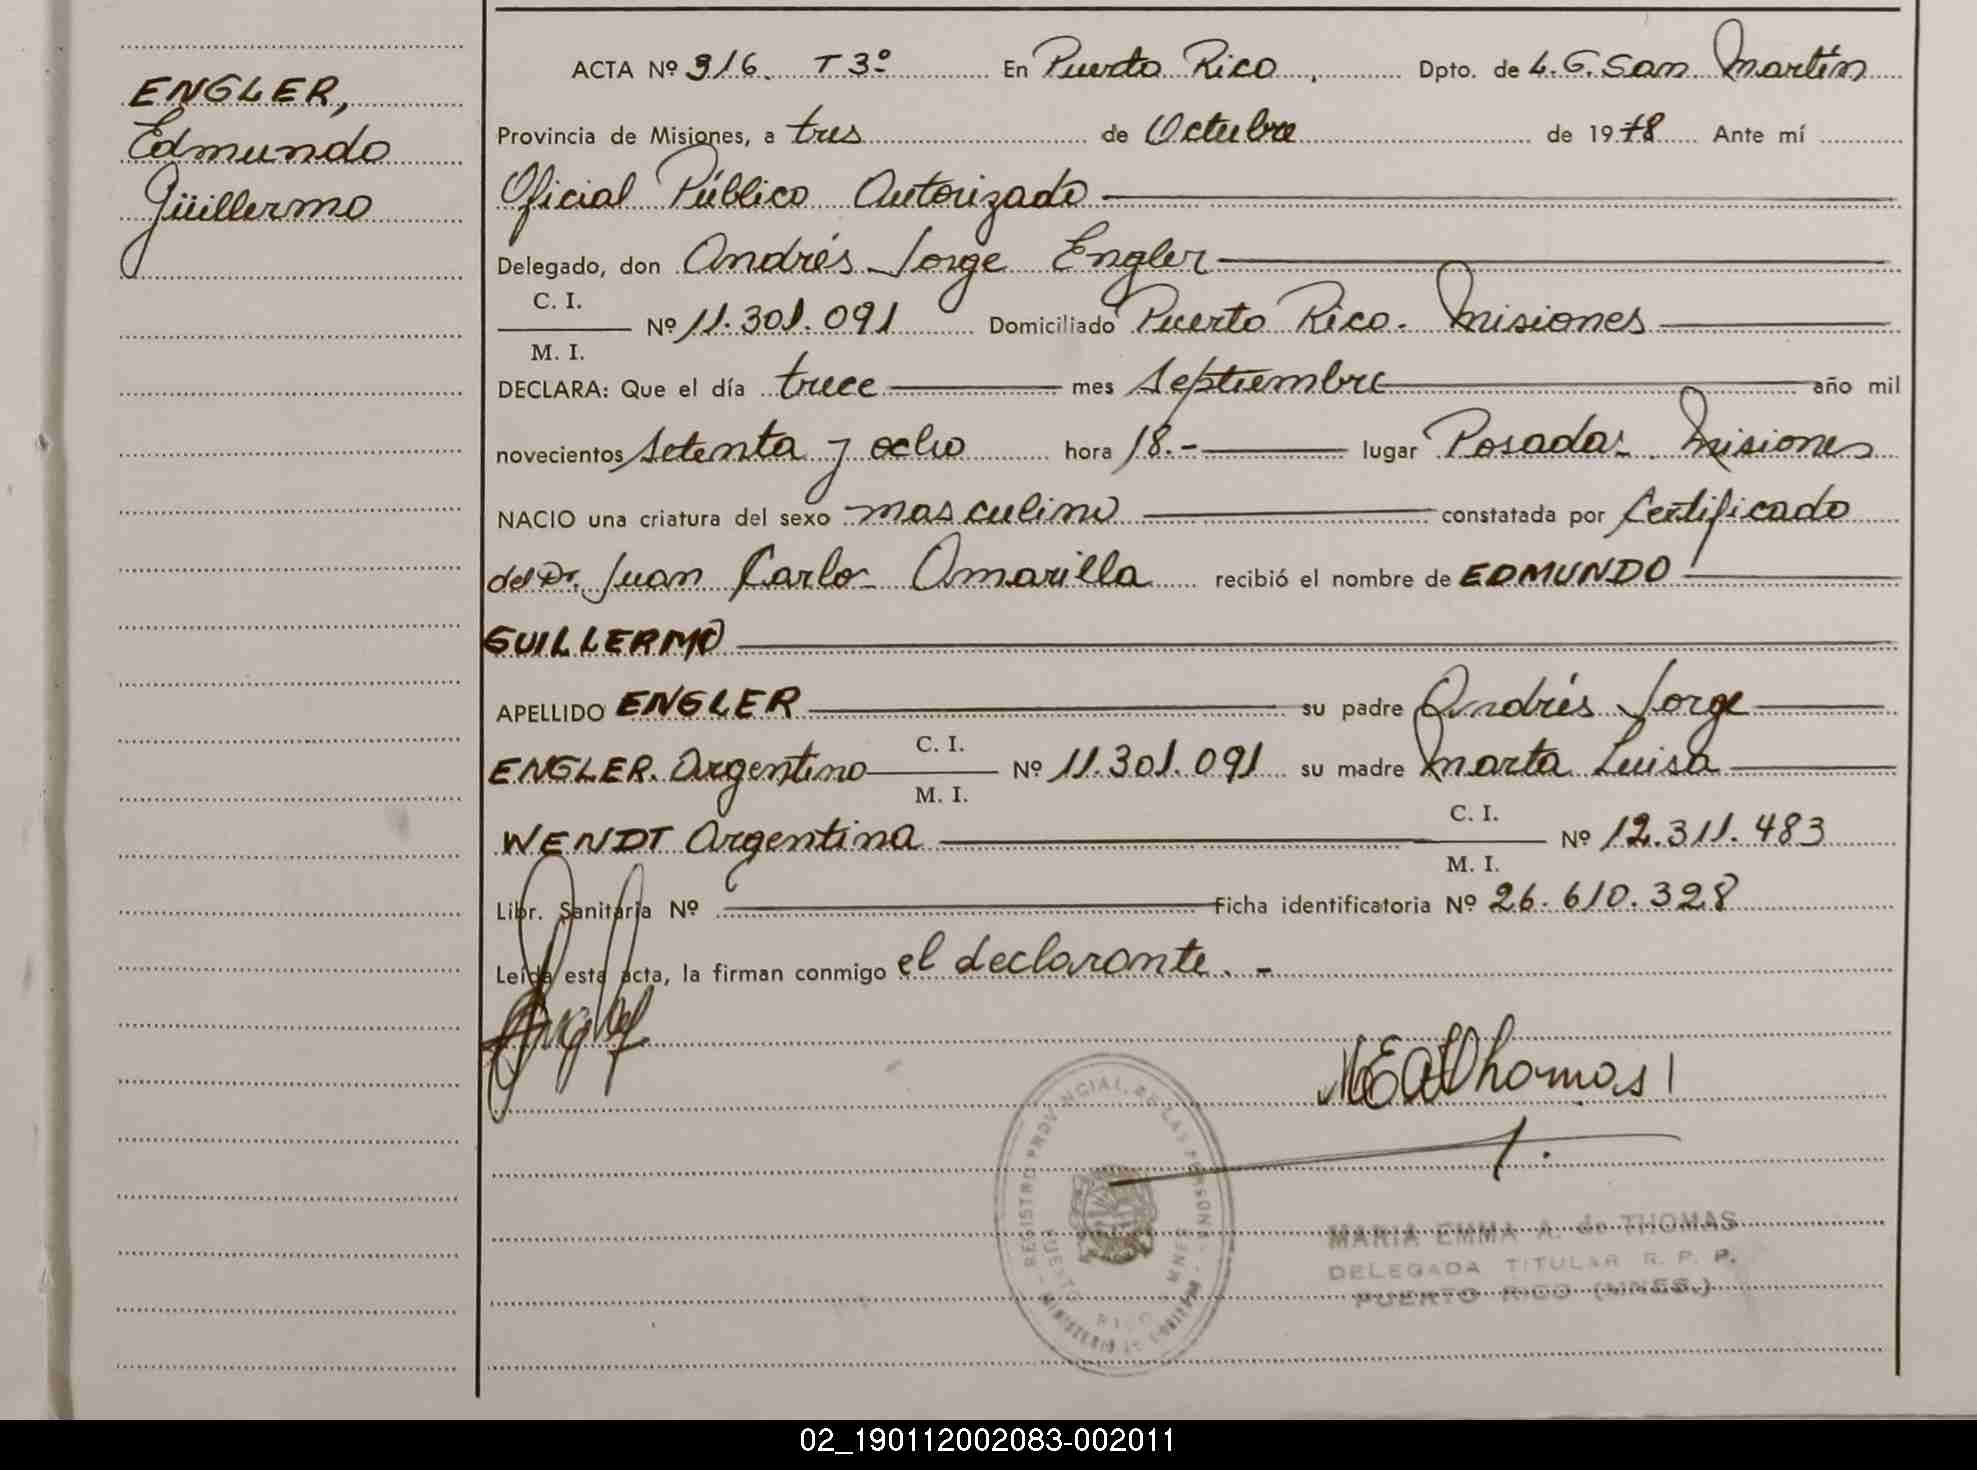 ENGLER,
Edmundo
Güillermo
ACTA Nº 316. T 3º En Puerto Rico, Dpto. de L. G. San Martín
Provincia de Misiones, a tres de Octubre de 1978 Ante mí
Oficial Público Autorizado
Delegado, don Andrés Jorge Engler
C. I.
M. I.
Nº 11.301.091 Domiciliado Puerto Rico. Misiones
DECLARA: Que el día trece mes Septiembre año mil
novecientos setenta y ocho hora 18.- lugar Posadas. Misiones
NACIO una criatura del sexo masculino constatada por Certificado
del Dr. Juan Carlos Amarilla recibió el nombre de EDMUNDO
GUILLERMO
APELLIDO ENGLER su padre Andrés Jorge
ENGLER. Argentino C. I. M. I. Nº 11.301.091 su madre Marta Luisa
WENDT Argentina C. I. M. I. Nº 12.311.483
Libr. Sanitaria Nº Ficha identificatoria Nº 26.610.328
Leída esta acta, la firman conmigo el declarante. -
Engler
MEAThomas
REGISTRO PROVINCIAL DE LAS PERSONAS
PUERTO RICO MNES
MINISTERIO DE GOBIERNO
MARIA EMMA A. de THOMAS
DELEGADA TITULAR R. P. P.
PUERTO RICO (MNES.)
02_190112002083-002011